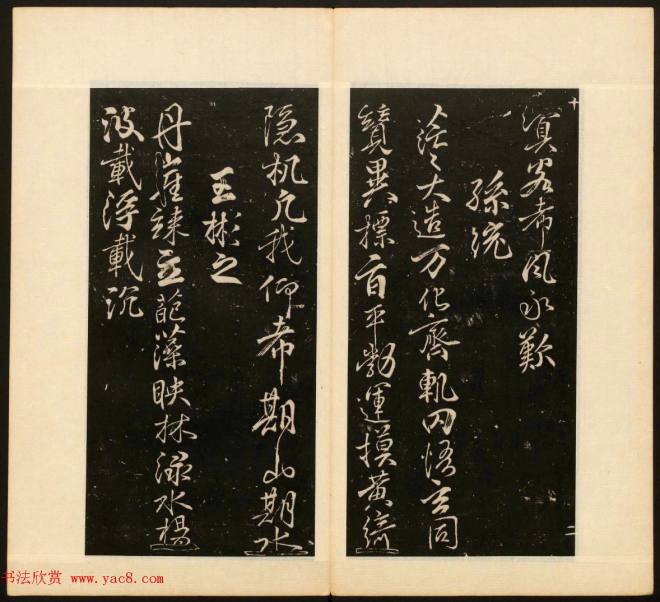 嘉客希風永歎
孫統
茫〻大造万化齊軌罔悟玄同
競異摽旨平勃運摸黄綺
隐机凡我仰希期山期水
王彬之
丹崖竦立葩藻映林渌水揚
波載浮載沉
书法欣赏 www.yac8.com